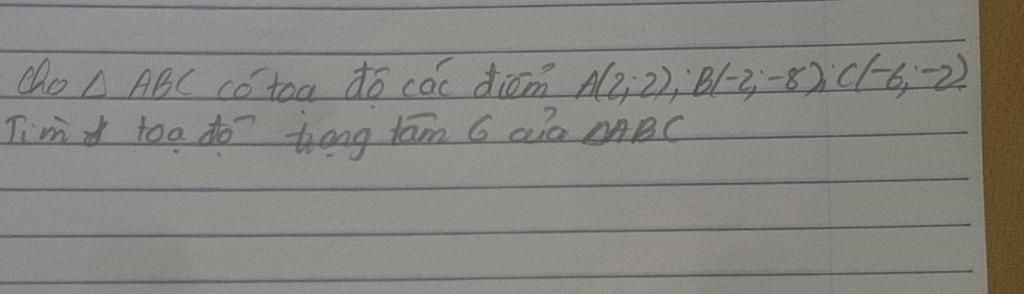 Cho △ ABC có toạ độ các điểm A(2;2); B(-2;-8); C(-6;-2)
Tìm toạ độ trọng tâm G của △ABC